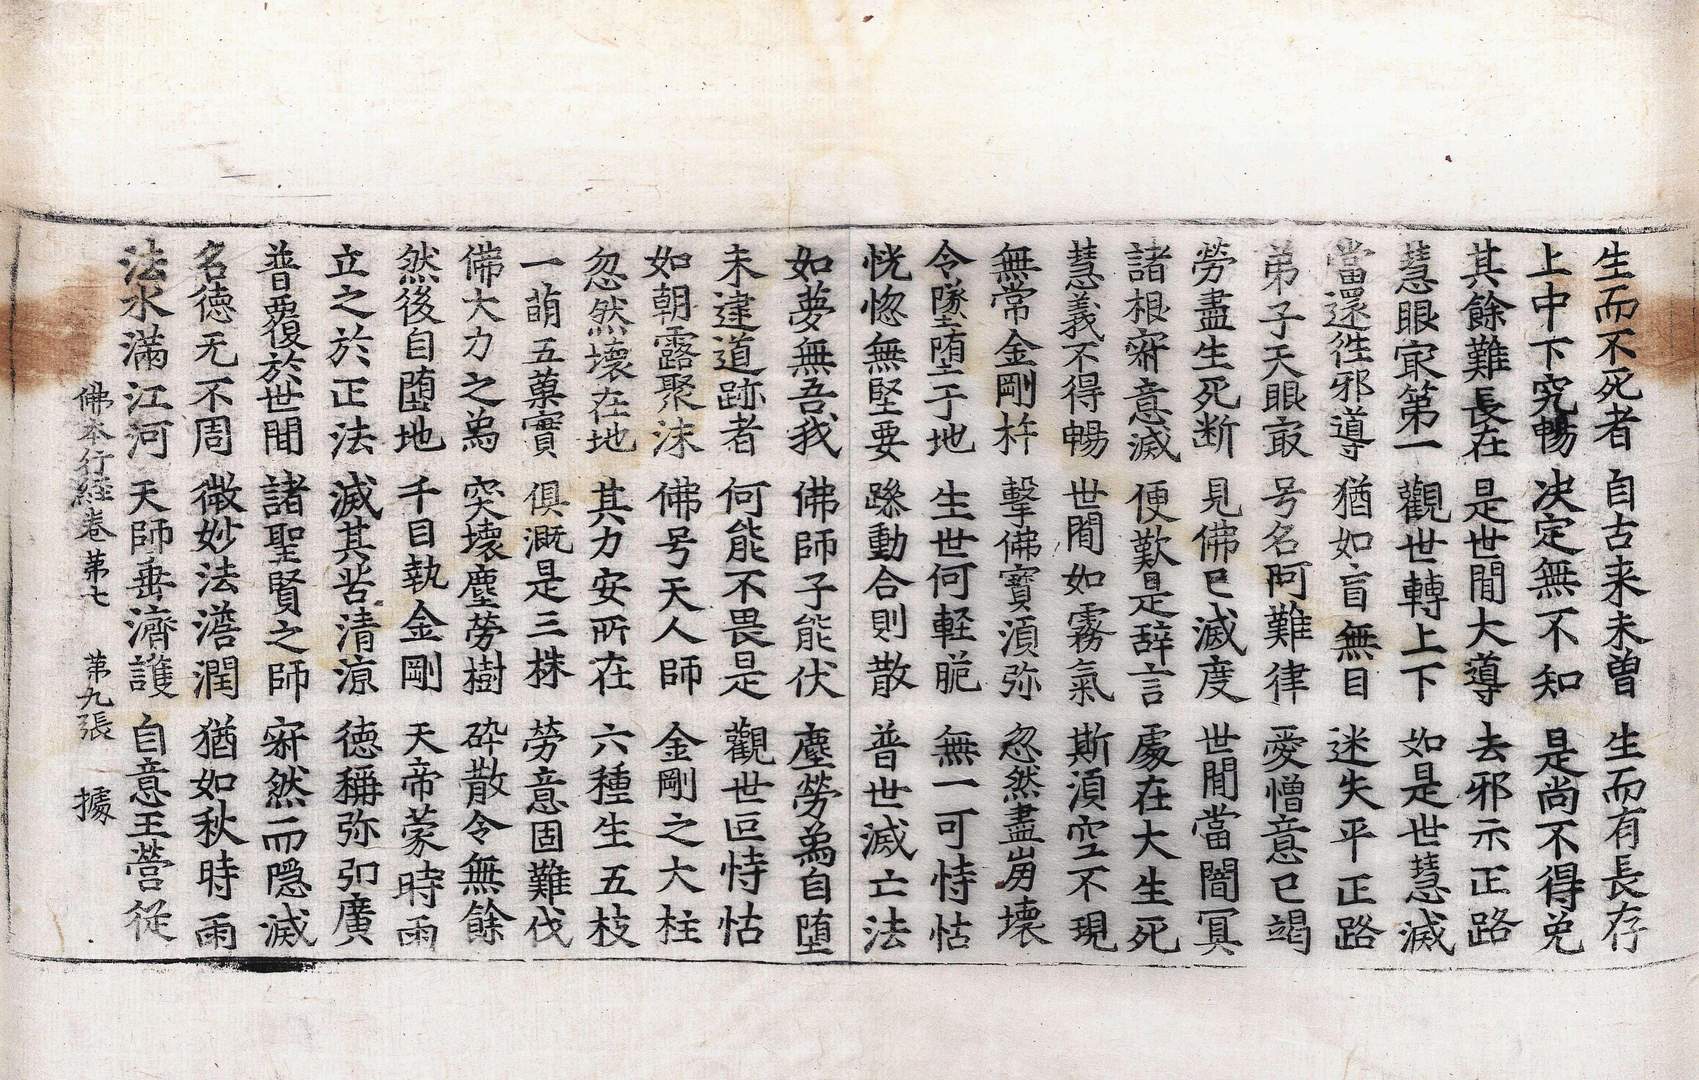 生而不死者 自古来未曽 生而有長存
上中下究暢 决定無不知 是尚不得免
其餘難長在 是世間大導 去邪示正路
慧眼㝡第一 觀世轉上下 如是世慧滅
當還徃邪導 猶如盲無目 迷失平正路
弟子天眼㝡 号名阿難律 愛憎意已竭
勞盡生死断 見佛已滅度 世間當闇冥
諸根寂意滅 便歎是辞言 處在大生死
慧義不得暢 世間如霧氣 斯湏空不現
無常金剛杵 擊佛寳湏弥 忽然盡崩壊
令墜堕于地 生世何軽脆 無一可恃怙
恍惚無堅要 躁動合則散 普世滅亡法
如夢無吾我 佛師子能伏 塵勞為自堕
未逮道跡者 何能不畏是 觀世叵恃怙
如朝露聚沫 佛号天人師 金剛之大柱
忽然壊在地 其力安所在 六種生五枝
一萌五菓實 俱溉是三株 勞意固難伐
佛大力之為 突壊塵勞樹 碎散令無餘
然後自堕地 千目執金剛 天帝蒙時雨
立之於正法 滅其苦清涼 德稱弥弘廣
普覆於世間 諸聖賢之師 寂然而隱滅
名德无不周 微妙法澹潤 猶如秋時雨
法水滿江河 天師垂濟護 自意王營從
佛本行経卷苐七 苐九張 據